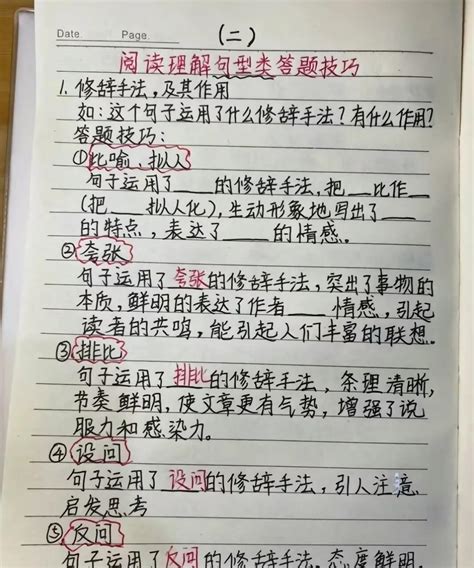 Date.
Page.
(二)
阅读理解句型类答题技巧
1. 修辞手法,及其作用
如:这个句子运用了什么修辞手法?有什么作用?
答题技巧:
①比喻、拟人
句子运用了____的修辞手法,把__比作__
(把__拟人化),生动形象地写出了____
的特点,表达了____的情感。
②夸张
句子运用了夸张的修辞手法,突出了事物的
本质,鲜明的表达了作者___情感,引起
读者的共鸣,能引起人们丰富的联想。
③排比
句子运用了排比的修辞手法,条理清晰,
节奏鲜明,使文章更有气势,增强了说
服力和感染力。
④设问
句子运用了设问的修辞手法,引人注意,
启发思考
⑤反问
句子运用了反问的修辞手法,态度鲜明,